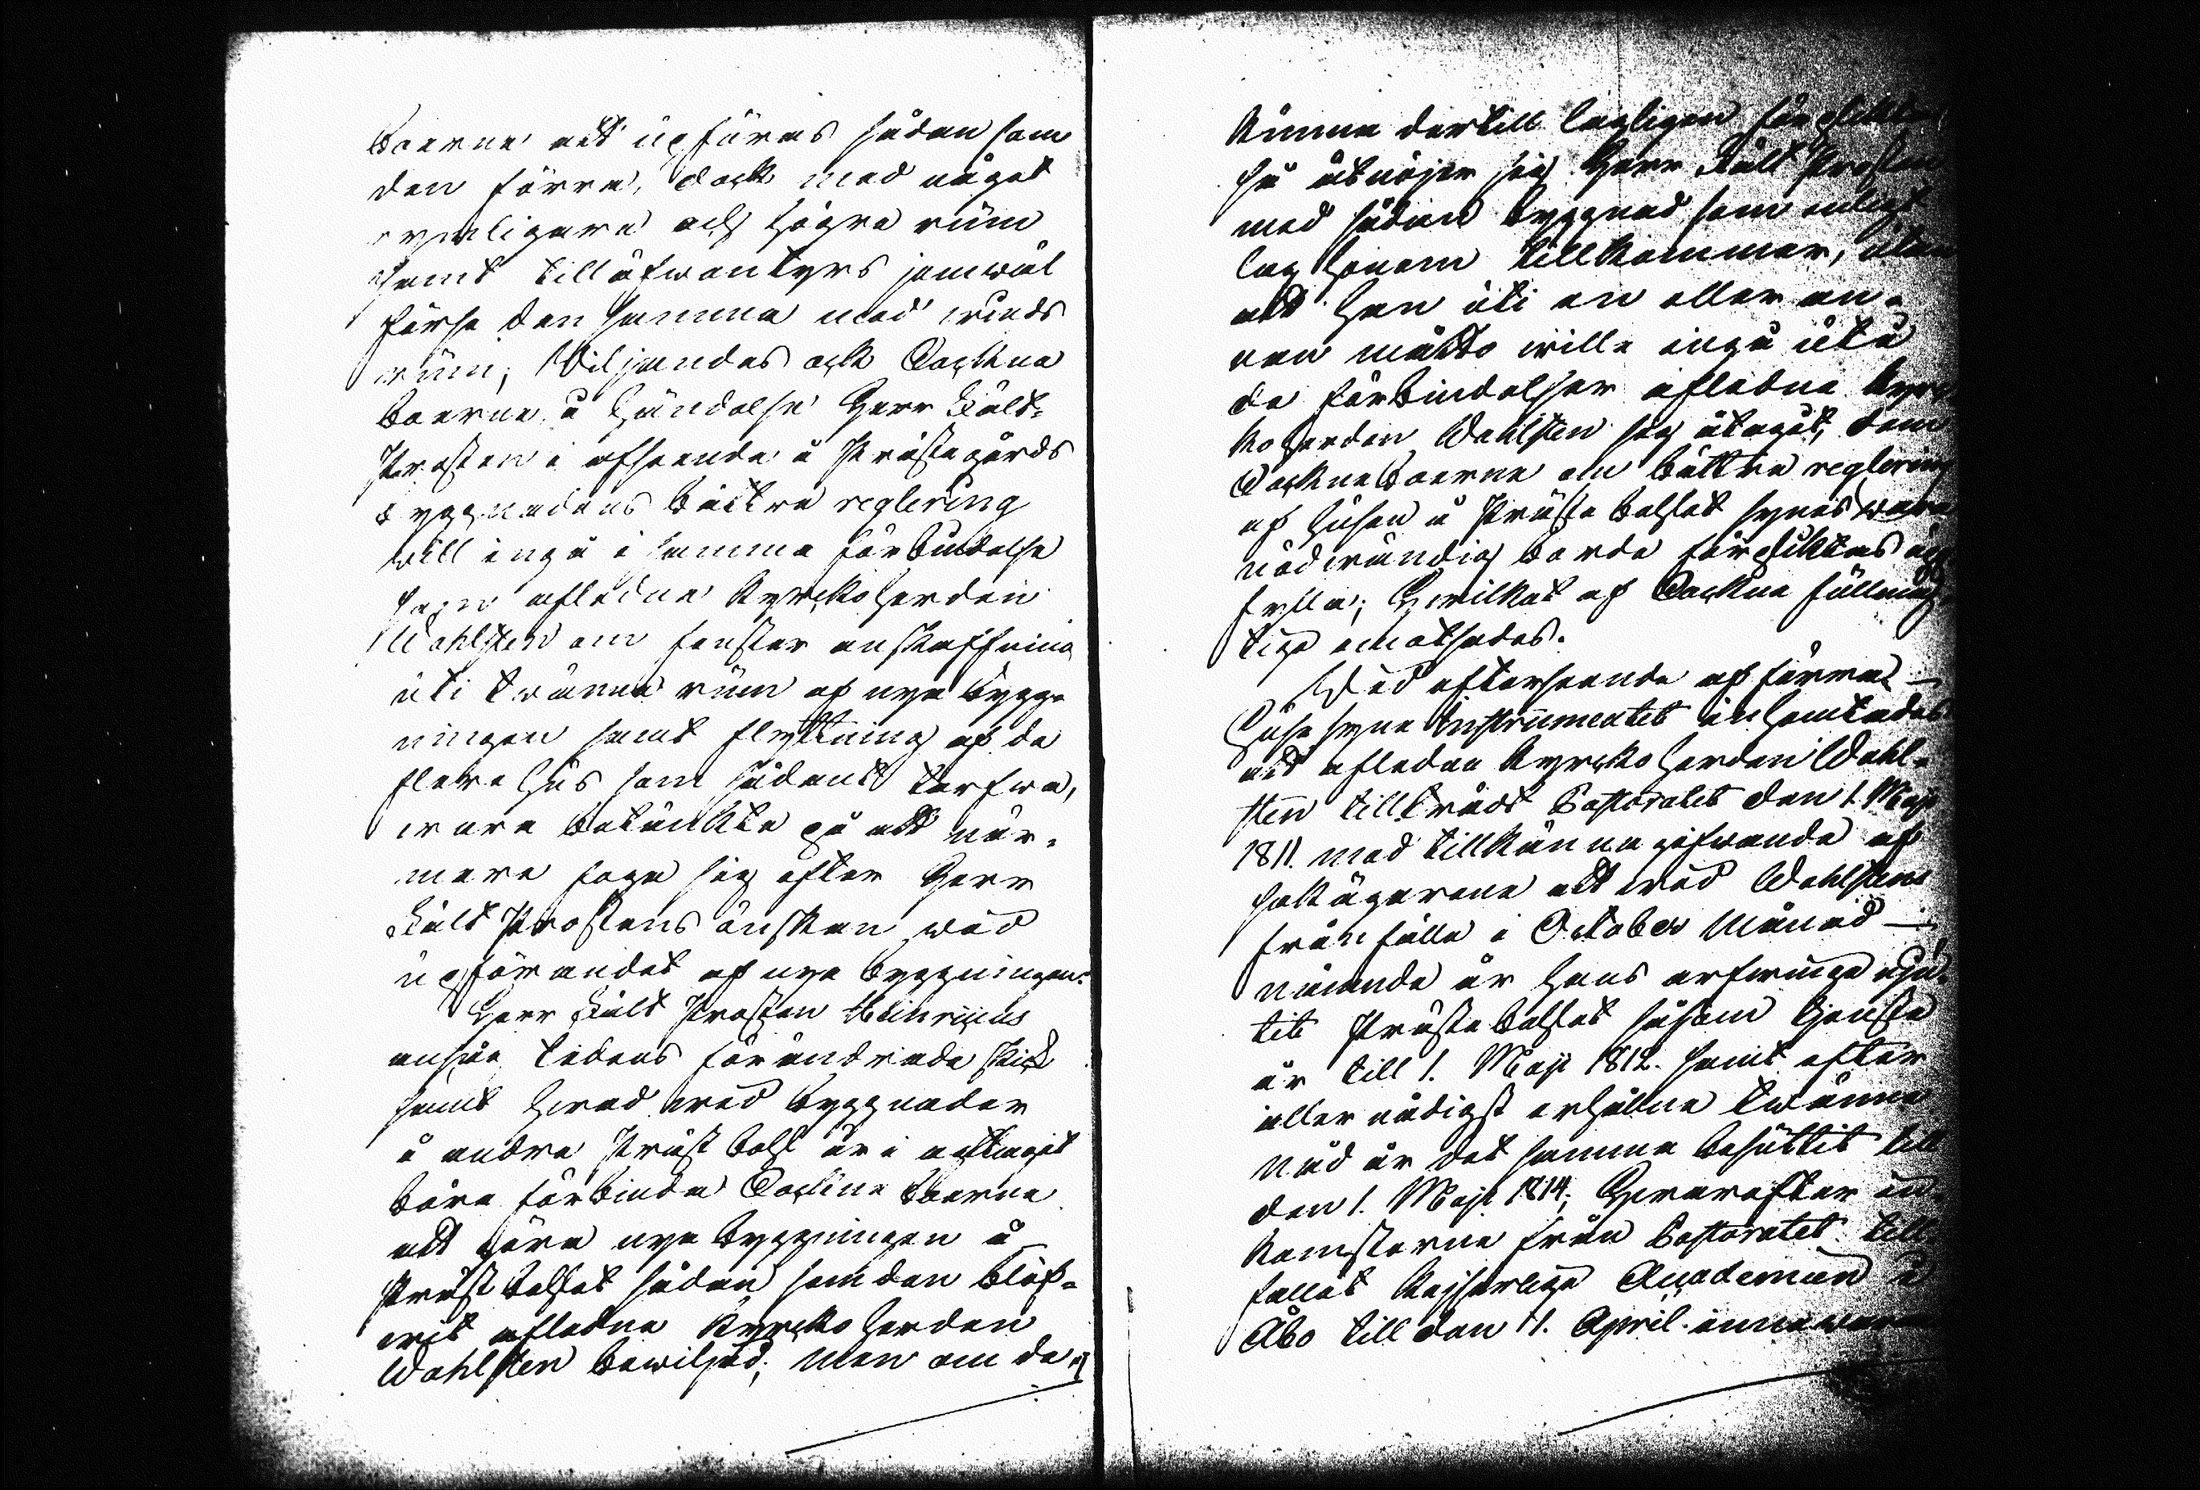 Boerne att upföras sådan som
den förra, dock med något
rymligare och högre rum
samt till äfwentyrs jemwäl
förse den samma med winds
rum; Wiljandes ock Sockne
boerne, i händelse Herr Fält-
Prosten i afseende å Prästegårds
byggnadens bättre reglering
will ingå i samma förbindelse
som afledne Kyrckoherden
Wahlsten om fenster anskaffning
uti twänne rum af nya bygg-
ningen samt flyttning af de
flere hus som sådant tarfwa,
wara betänkte på att när-
mare foga sig efter Herr
Fält Prostens önskan wid
upförandet af nya byggningen.
Herr Fält Prosten Heinricius
ansåg tidens förändrade skick
samt hwad wid byggnader
å andra Präst bohl är i acttagit
böra förbinda Sockne boerne
att göra nya byggningen å
Präst bohlet sådan som den blif-
wit afledne Kyrcko herden
Wahlsten bewiljad; men om de ej
kunna dertill lagligen förpliktas
så åtnöjer sig Herr Fält Prosten
med sådan byggnad som enligt
lag honom tillkommer, utan
att han uti en eller an-
nan måtto wille ingå uti
de förbindelser afledne Kyrc
koherden Wahlsten sig åtagit, dem
Sockneboerne om bättre reglering
af husen å Präste bohlet synes wara
nödwändig borde förpliktas upp
fylla; Hwilket af Sockne fullmäg-
tige emotsades.
Wid efterseende af förra
Husesyns Instrumentet inhemtades
att afledne Kyrcko herden Wahl-
sten tillträdt Pastoratet den 1. Maji
1811. med tillkänna gifwande af
sakägarene att wid Wahlstens
frånfälle i October Månad
nämnde år hans arfwinge nju-
tit Präste bohlet såsom tjenste
år till 1. Maji 1812. samt efter
aller nådigst erhållne twänne
nåd år det samma besuttit till
den 1. Maji 1814; Hwarefter in-
komsterne från Pastoratet till
fallit Kejserliga Academien i
Åbo till den 1. April innewaran